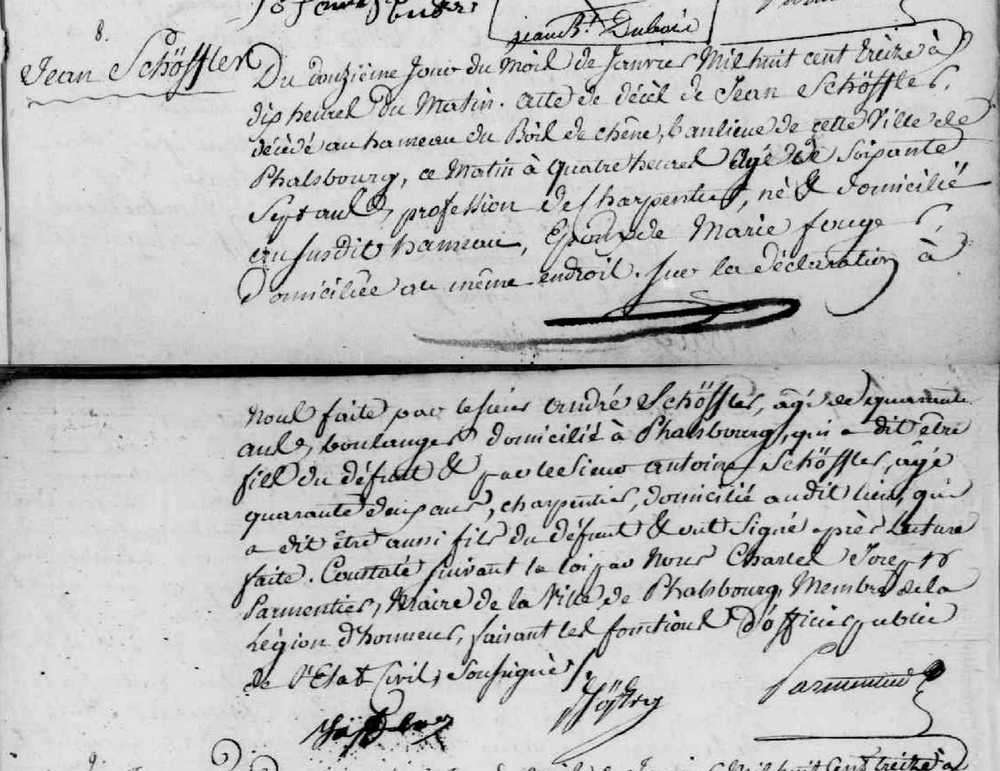 jean Bt. Dubois
8.
Jean Schöffler
Du douzième Jour du Mois de Janvier Mil huit cent treize à
dix heures du Matin. acte de décès de Jean Schöffler,
décédé au hameau du Bois de chêne, banlieue de cette Ville de
Phalsbourg, ce Matin à quatre heures âgé de Soixante
Sept ans, profession de Charpentier, né & domicilié
au susdit hameau, Epoux de Marie fouge
Domiciliée au même endroit. sur la déclaration à
Nous faite par le sieur André Schöffler, agé de quarante
ans, boulanger domicilié à Phalsbourg, qui a dit être
fils du défunt & par le sieur Antoine Schöffler, agé
quarante deux ans, charpentier, domicilié audit lieu, qui
a dit être aussi fils du défunt & ont Signé après Lecture
faite. Constaté suivant la loi par Nous Charles
Parmentier, Maire de la Ville de Phalsbourg, Membre de la
Légion d'honneur, faisant les fonctions d'officier public
de l'Etat Civil, Soussigné
Parmentier
Mil huit Cent treize à